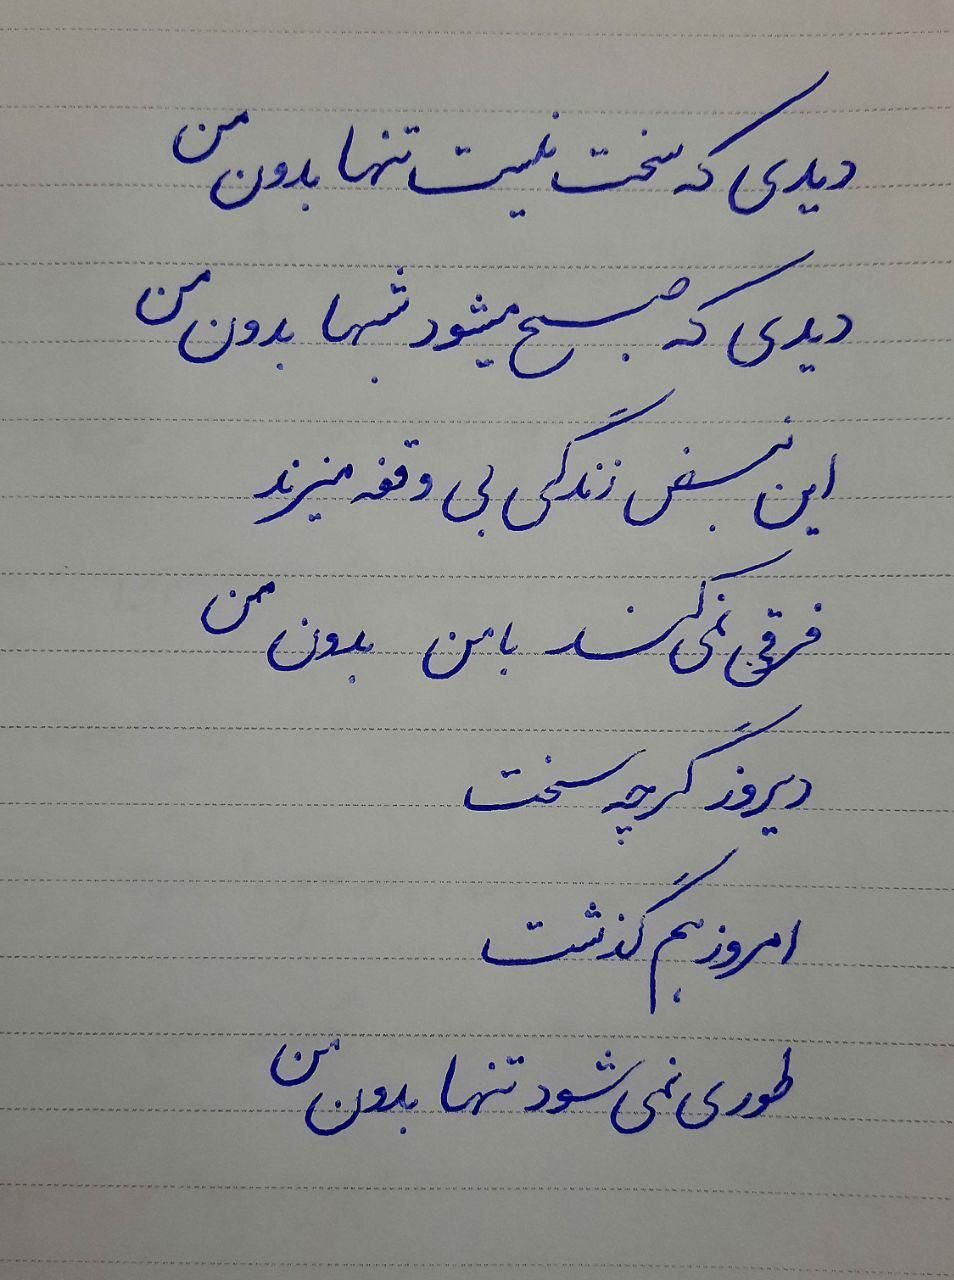 دیدی که سخت نیست تنها بدون من
دیدی که صبح میشود شبها بدون من
این نبض زندگی بی وقفه میزند
فرقی نمی کند با من بدون من
دیروز گرچه سخت
امروز هم گذشت
طوری نمی شود تنها بدون من